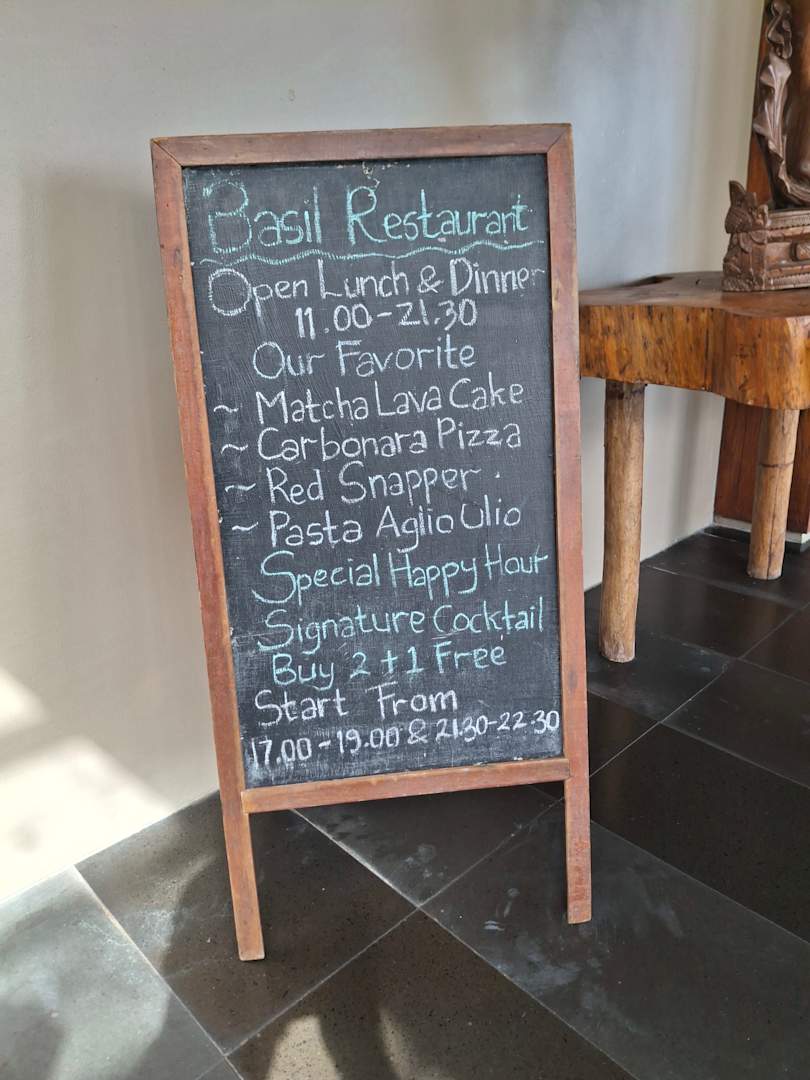 Basil Restaurant
Open Lunch & Dinner
11.00-21.30
Our Favorite
~ Matcha Lava Cake
~ Carbonara Pizza
~ Red Snapper.
~ Pasta Aglio Olio
Special Happy Hour
Signature Cocktail
Buy 2 + 1 Free
Start From
17.00-19.00 & 21.30-22.30